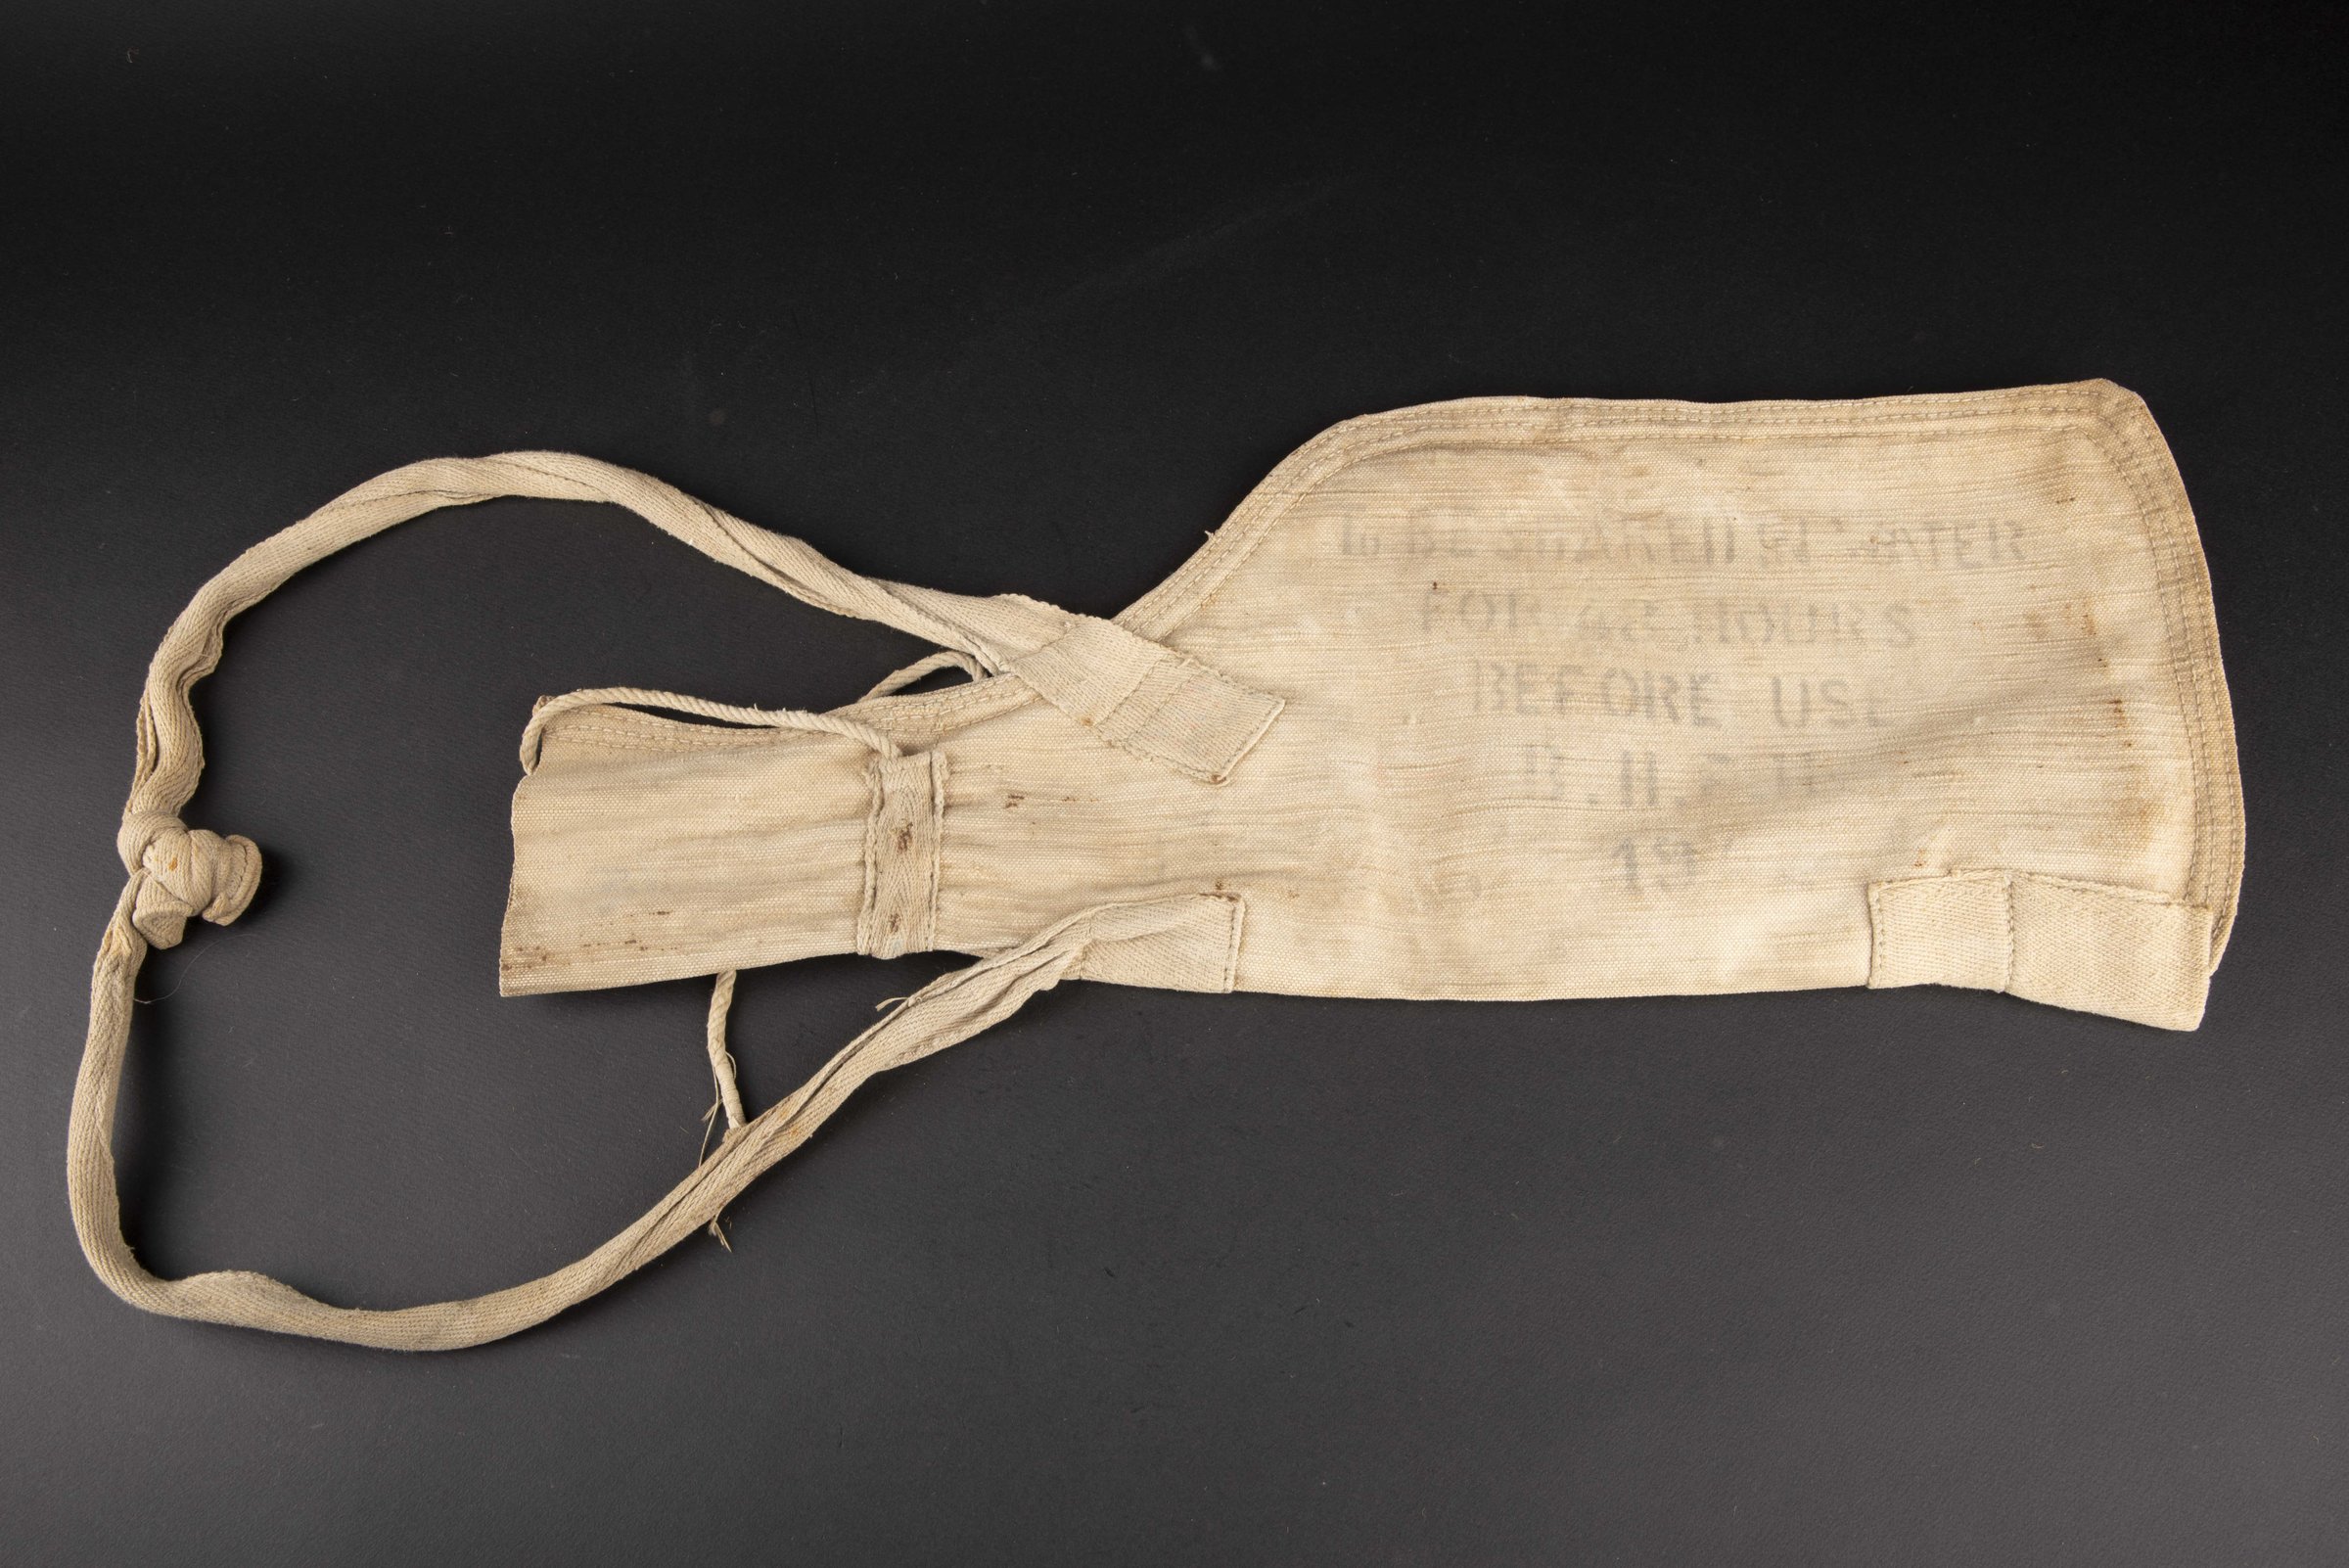 To BE SOAKED IN WATER
FOR 48 HOURS
BEFORE USE
B.H.
19